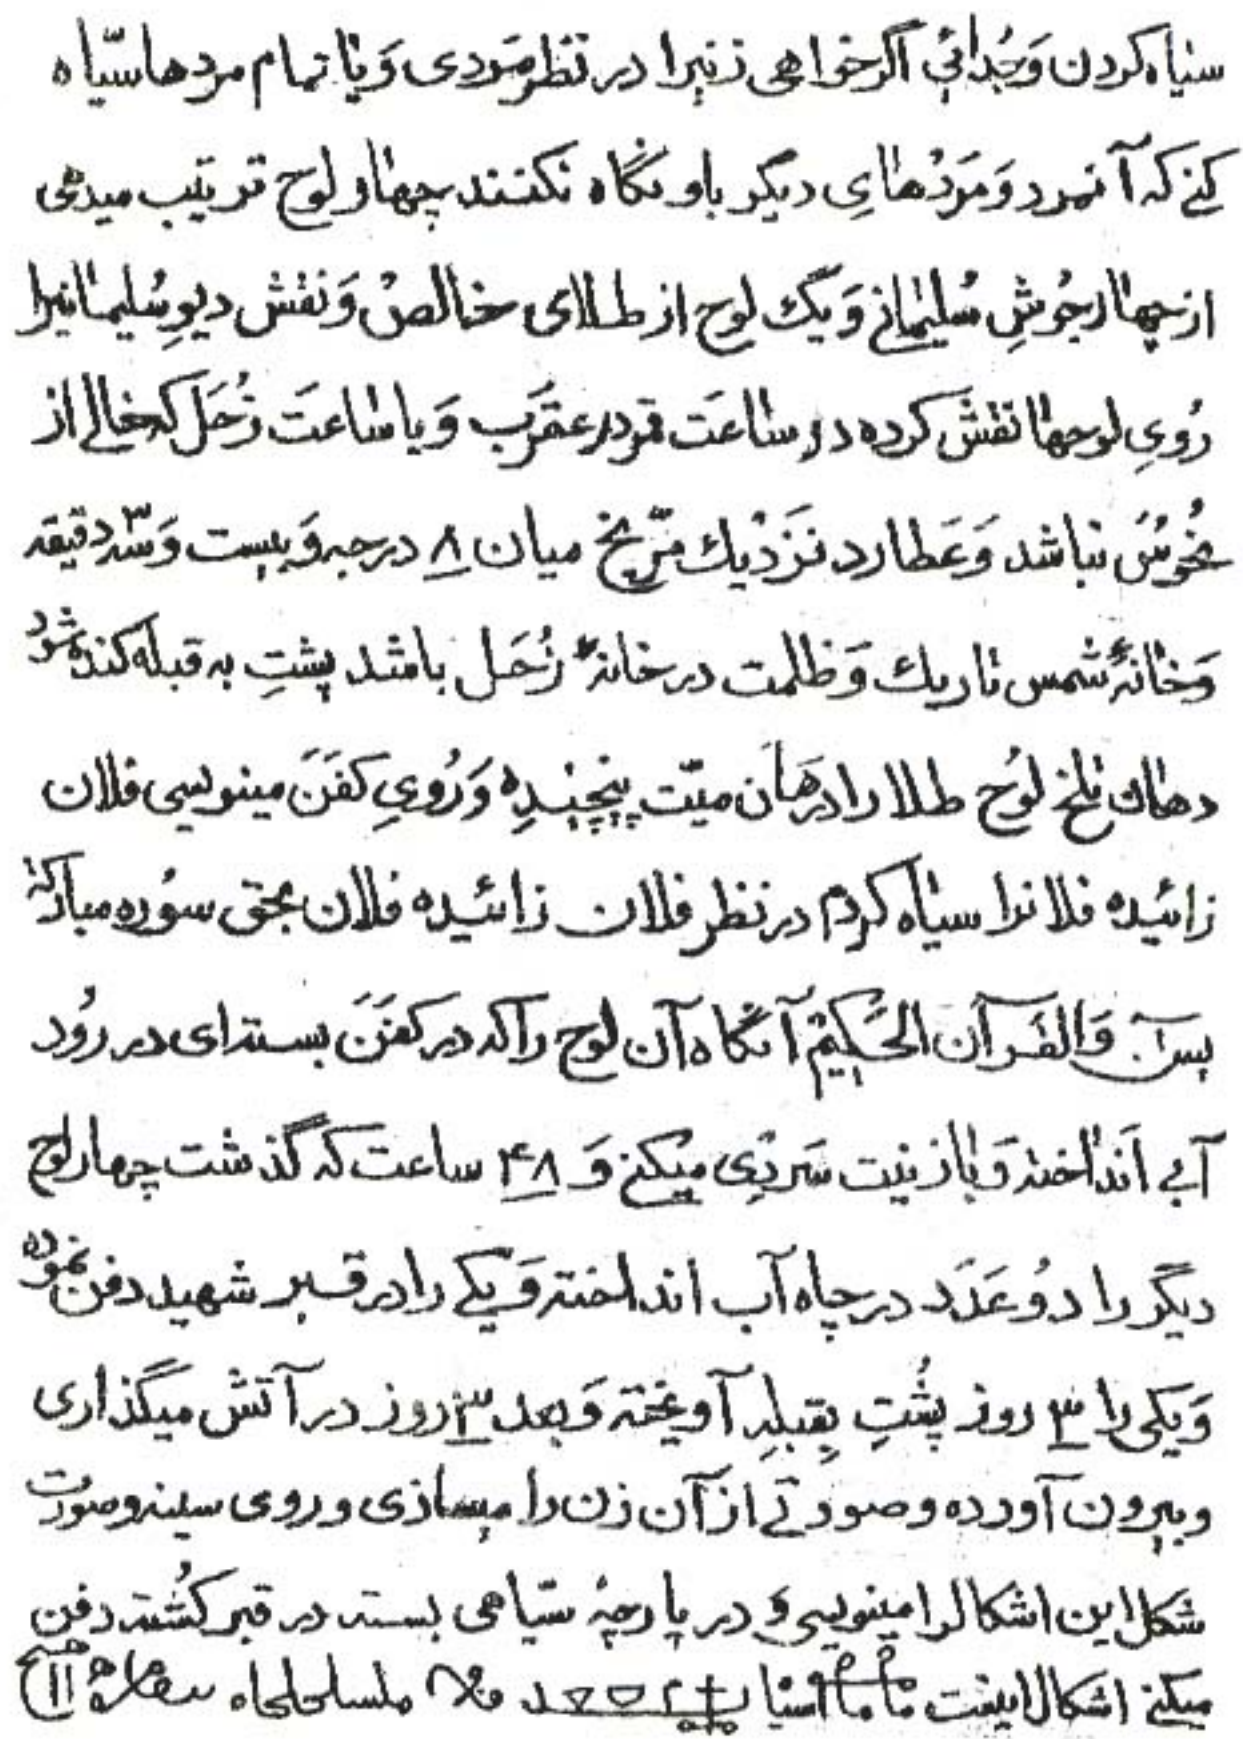 سیاه کردن وَ جُدائی اگر خواهی زنیرا در نظر مَردی وَ یا تمام مردها سیّاه
کنے که آنمرد وَ مَردْهاىِ دیگر باو نگاه نکنند چهار لوح ترتیب میدهی
از چهار جُوشِ سُلیمانے وَ یک لوح از طلاى خالصْ وَ نقش دیوِ سُلیمانیرا
رُوىِ لوحها نقشَ کرده در ساعَت قمر در عقرَب وَ یا ساعَت زُحَل که خالے از
نُحُوسُ نباشد وَ عَطارد نَزَدْیک مرّیخ میان ۸ درجه وَ بیست وَ سّه ۳ دقیقه
وَ خانهٔ شمس تاریک وَ ظلمت در خانهٔ زُحَل باشد پشتِ به قبله کنده شود
لوُح طلا را در دهَان میّت پیچیدِه وَ رُوىِ کفَنَ مینویسی فلان
زائیده فلانرا سیاه کردم در نظر فلان زائیده فلان بحق سوُره مبارکه
یسٓ وَالقُرآن الحَکیمْ آنگاه آن لوح را که در کفَنَ بسته‌ای در رُود
آبے اَنداخته وَ باز نیت سَردِی میکنے وَ ۴۸ ساعت که گذشت چهار لوح
دیگر را دوُ عَدَد در چاه آب انداخته وَ یکے را در قبر شهید دفن نموده
وَ یکی را ۳ روز پُشْتِ بِقبلهِ آویخته وَ بعد ۳ روز در آتش میگذاری
و بیرون آورده و صورتے از آن زن را میسازی و روی سینه و صورت
شکل این اشکالرا مینویسی وَ در پارچهٔ سّیاهی بسته در قبر کُشته دفن
میکنے اشکال اینست